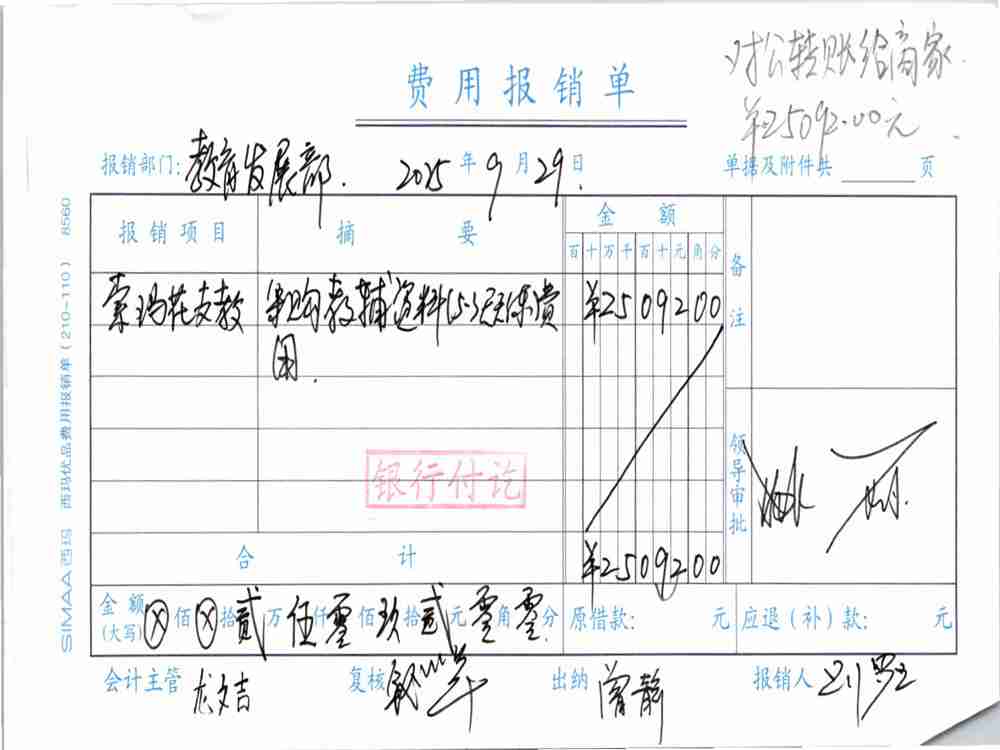 对公转账给商家.
¥25092.00元.
费用报销单
报销部门: 教育发展部. 2025年9月29日.
单据及附件共 页
报销项目 摘要 金额 备注
百十万千百十元角分
索玛花支教 采购教辅资料 费 ¥2509200
用.
银行付讫
领导审批
合计 ¥2509200
金额(大写) ⊗佰⊗拾贰万伍仟零佰玖拾贰元零角零分 原借款: 元 应退(补)款: 元
会计主管 龙文吉 复核 出纳 曾静 报销人
SIMAA西玛 西玛优品费用报销单(210-110) 8560